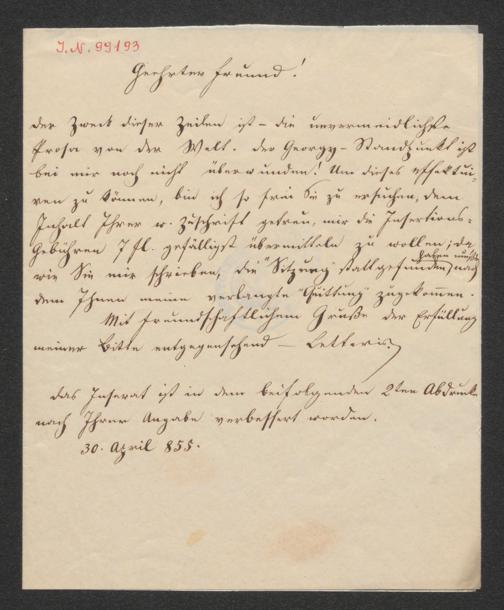 I.N. 99193
Geehrter Freund!
Der Zweck dieser Zeilen ist – die unvermeidlichste
Prosa von der Welt. Der Georgy- ist
bei mir noch nicht überwunden! Um dieses effektui-
ren zu können, bin ich so frei Sie zu ersuchen, dem
Inhalt Ihrer w. Zuschrift getreu, mir die Insertions-
Gebühren 7 fl. gefälligst übermitteln zu wollen; da,
wie Sie mir schrieben, die Sitzung stattgefunden haben mußte, nach
dem Ihnen meine verlangte Quittung zugekommen.
Mit freundschaftlichem Gruße der Erfüllung
meiner Bitte entgegensehend – Letteris.
Das Inserat ist in dem beifolgenden 2ten Abdrucke
nach Ihrer Angabe verbessert worden.
30. April 855.